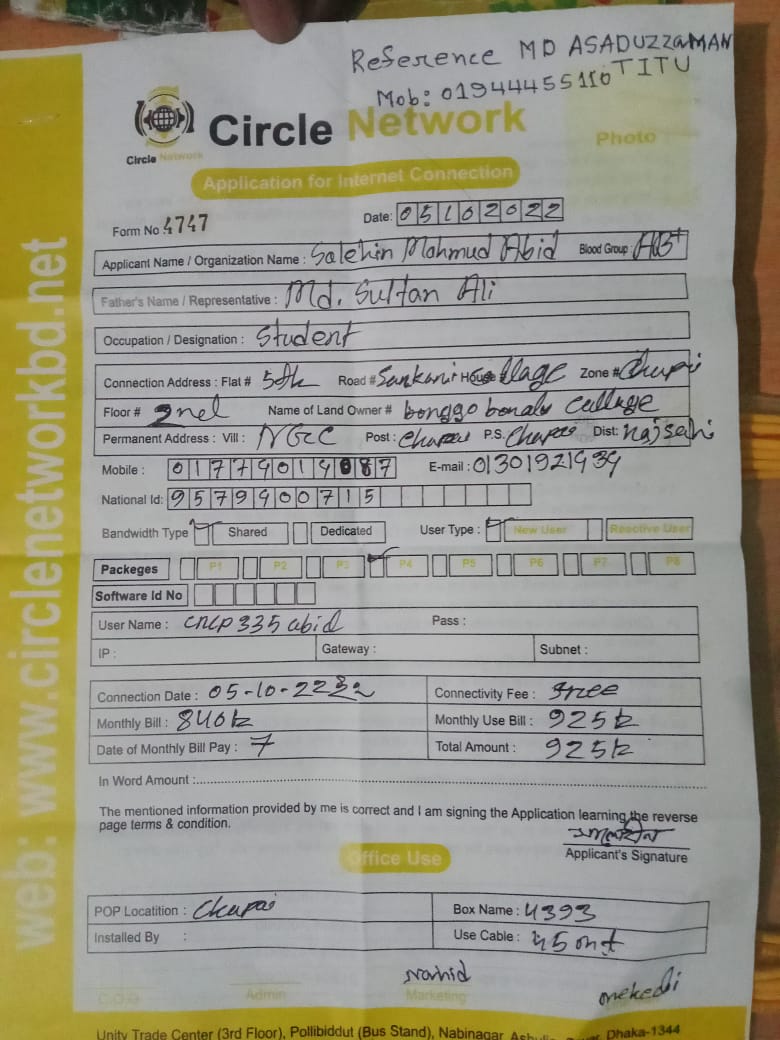 Reference MD ASADUZZaMAN
TITU
Mob: 01944455110
Circle Network
Circle Network
Photo
Application for Internet Connection
Form No 4747
Date: 05102022
Applicant Name / Organization Name : Salehin Mahmud Abid Blood Group : AB+
Father's Name / Representative : Md. Sultan Ali
Occupation / Designation : Student
Connection Address : Flat # 5th Road # House # Zone # Chapai
Floor # 2nd Name of Land Owner #
Permanent Address : Vill : NGC Post : P.S. Dist:
Mobile : E-mail : 01301921939
National Id: 9579900715
Bandwidth Type Shared Dedicated User Type : New User Reactive User
Packeges P1 P2 P3 P4 P5 P6 P7 P8
Software Id No
User Name : Pass :
IP : Gateway : Subnet :
Connection Date : 05-10- Connectivity Fee : free
Monthly Bill : 840 Monthly Use Bill : 925
Date of Monthly Bill Pay : 7 Total Amount : 925
In Word Amount :
The mentioned information provided by me is correct and I am signing the Application learning the reverse
page terms & condition.
Applicant's Signature
Office Use
POP Locatition : Chapai Box Name : 4393
Installed By : Use Cable : 45
Nahid
C.O.O Admin Marketing
Unity Trade Center (3rd Floor), Pollibiddut (Bus Stand), Nabinagar, Dhaka-1344
web: www.circlenetworkbd.net